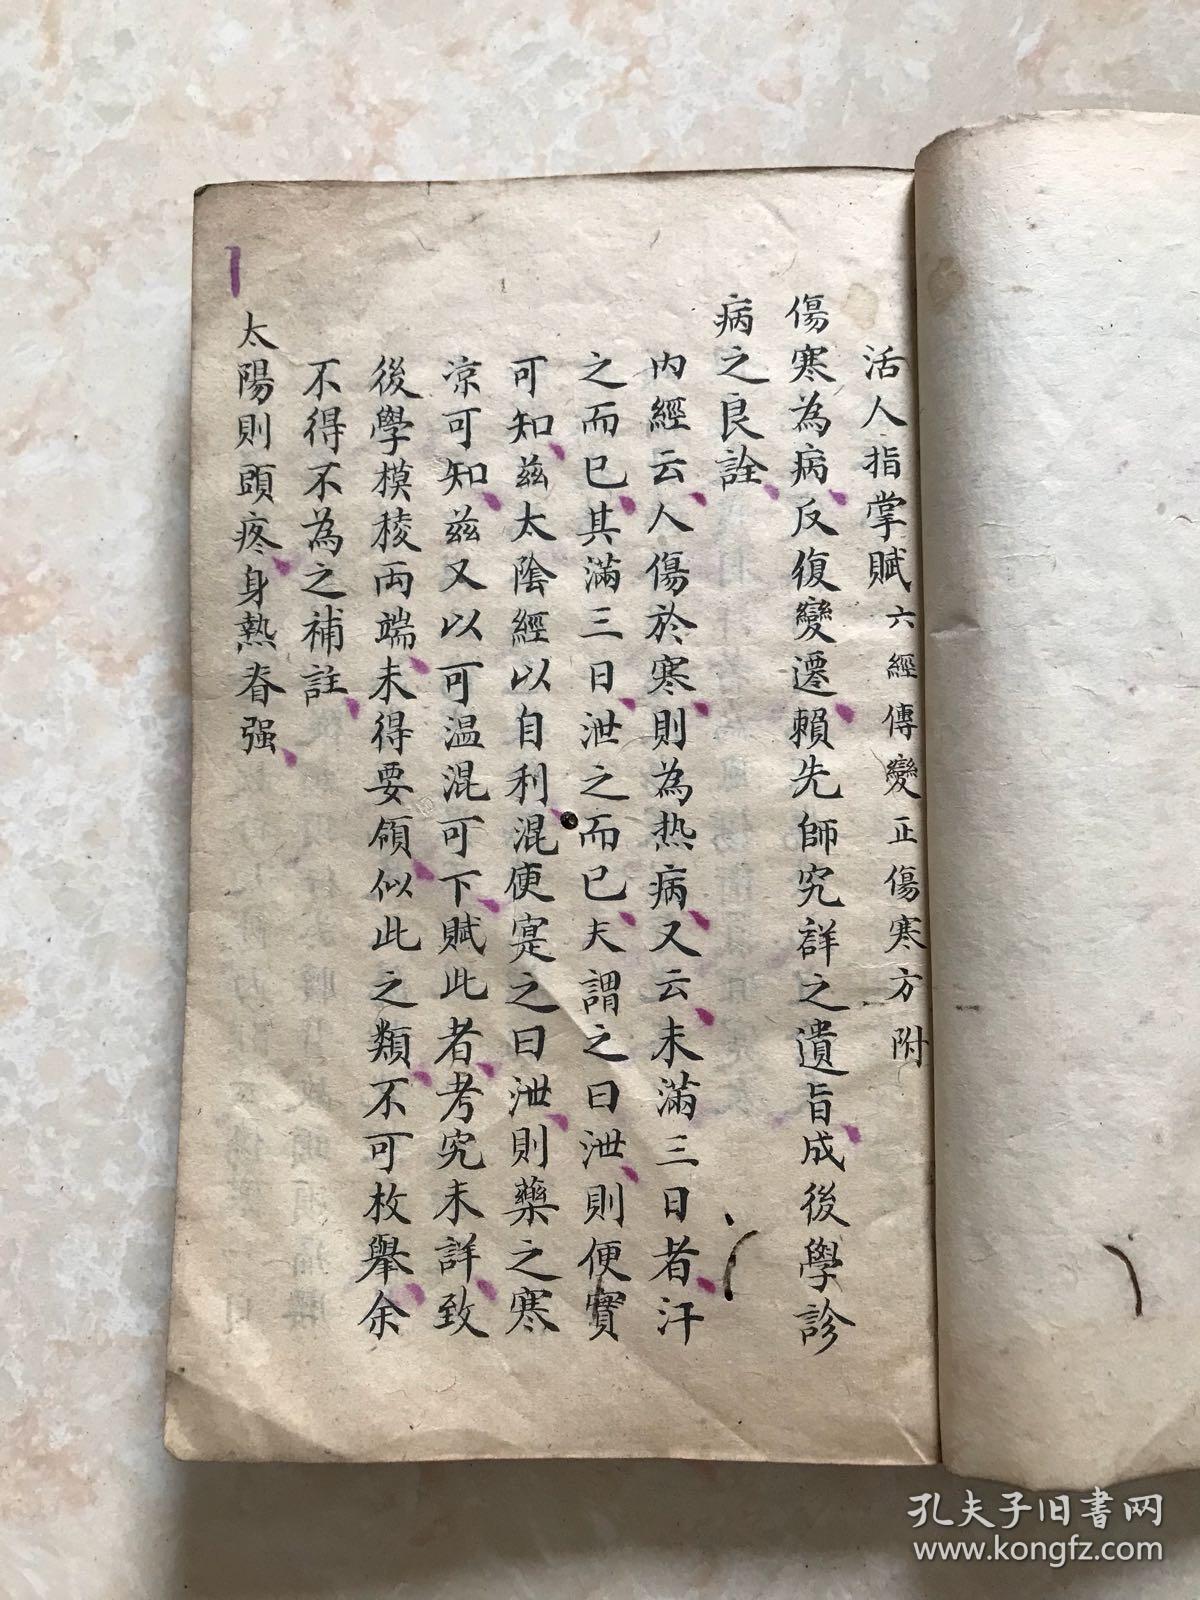 活人指掌賦 六經傳變正傷寒方附
傷寒為病反復變遷賴先師究詳之遺旨成後學診
病之良詮
內經云人傷於寒則為热病又云未滿三日者汗
之而已其滿三日泄之而已夫謂之曰泄則便實
可知茲太陰經以自利混便寔之曰泄則藥之寒
凉可知茲又以可温混可下賦此者考究未詳致
後學模稜両端未得要領似此之類不可枚舉余
不得不為之補註
太陽則頭疼身熱脊强
孔夫子旧书网
www.kongfz.com